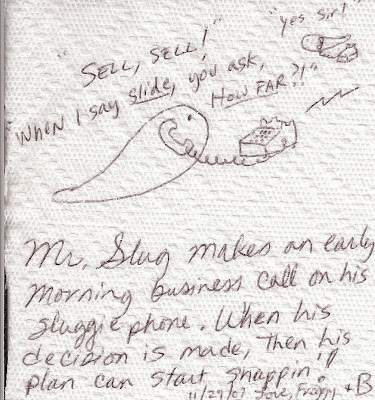 "yes sir!"
"SELL, SELL!
"WHEN I say slide, you ask,
How FAR?!"
Mr. Slug makes an early
morning business call on his
sluggie phone. When his
decision is made, Then his
plan can start snappin'!!
11/29/07 Love, Froggy + B